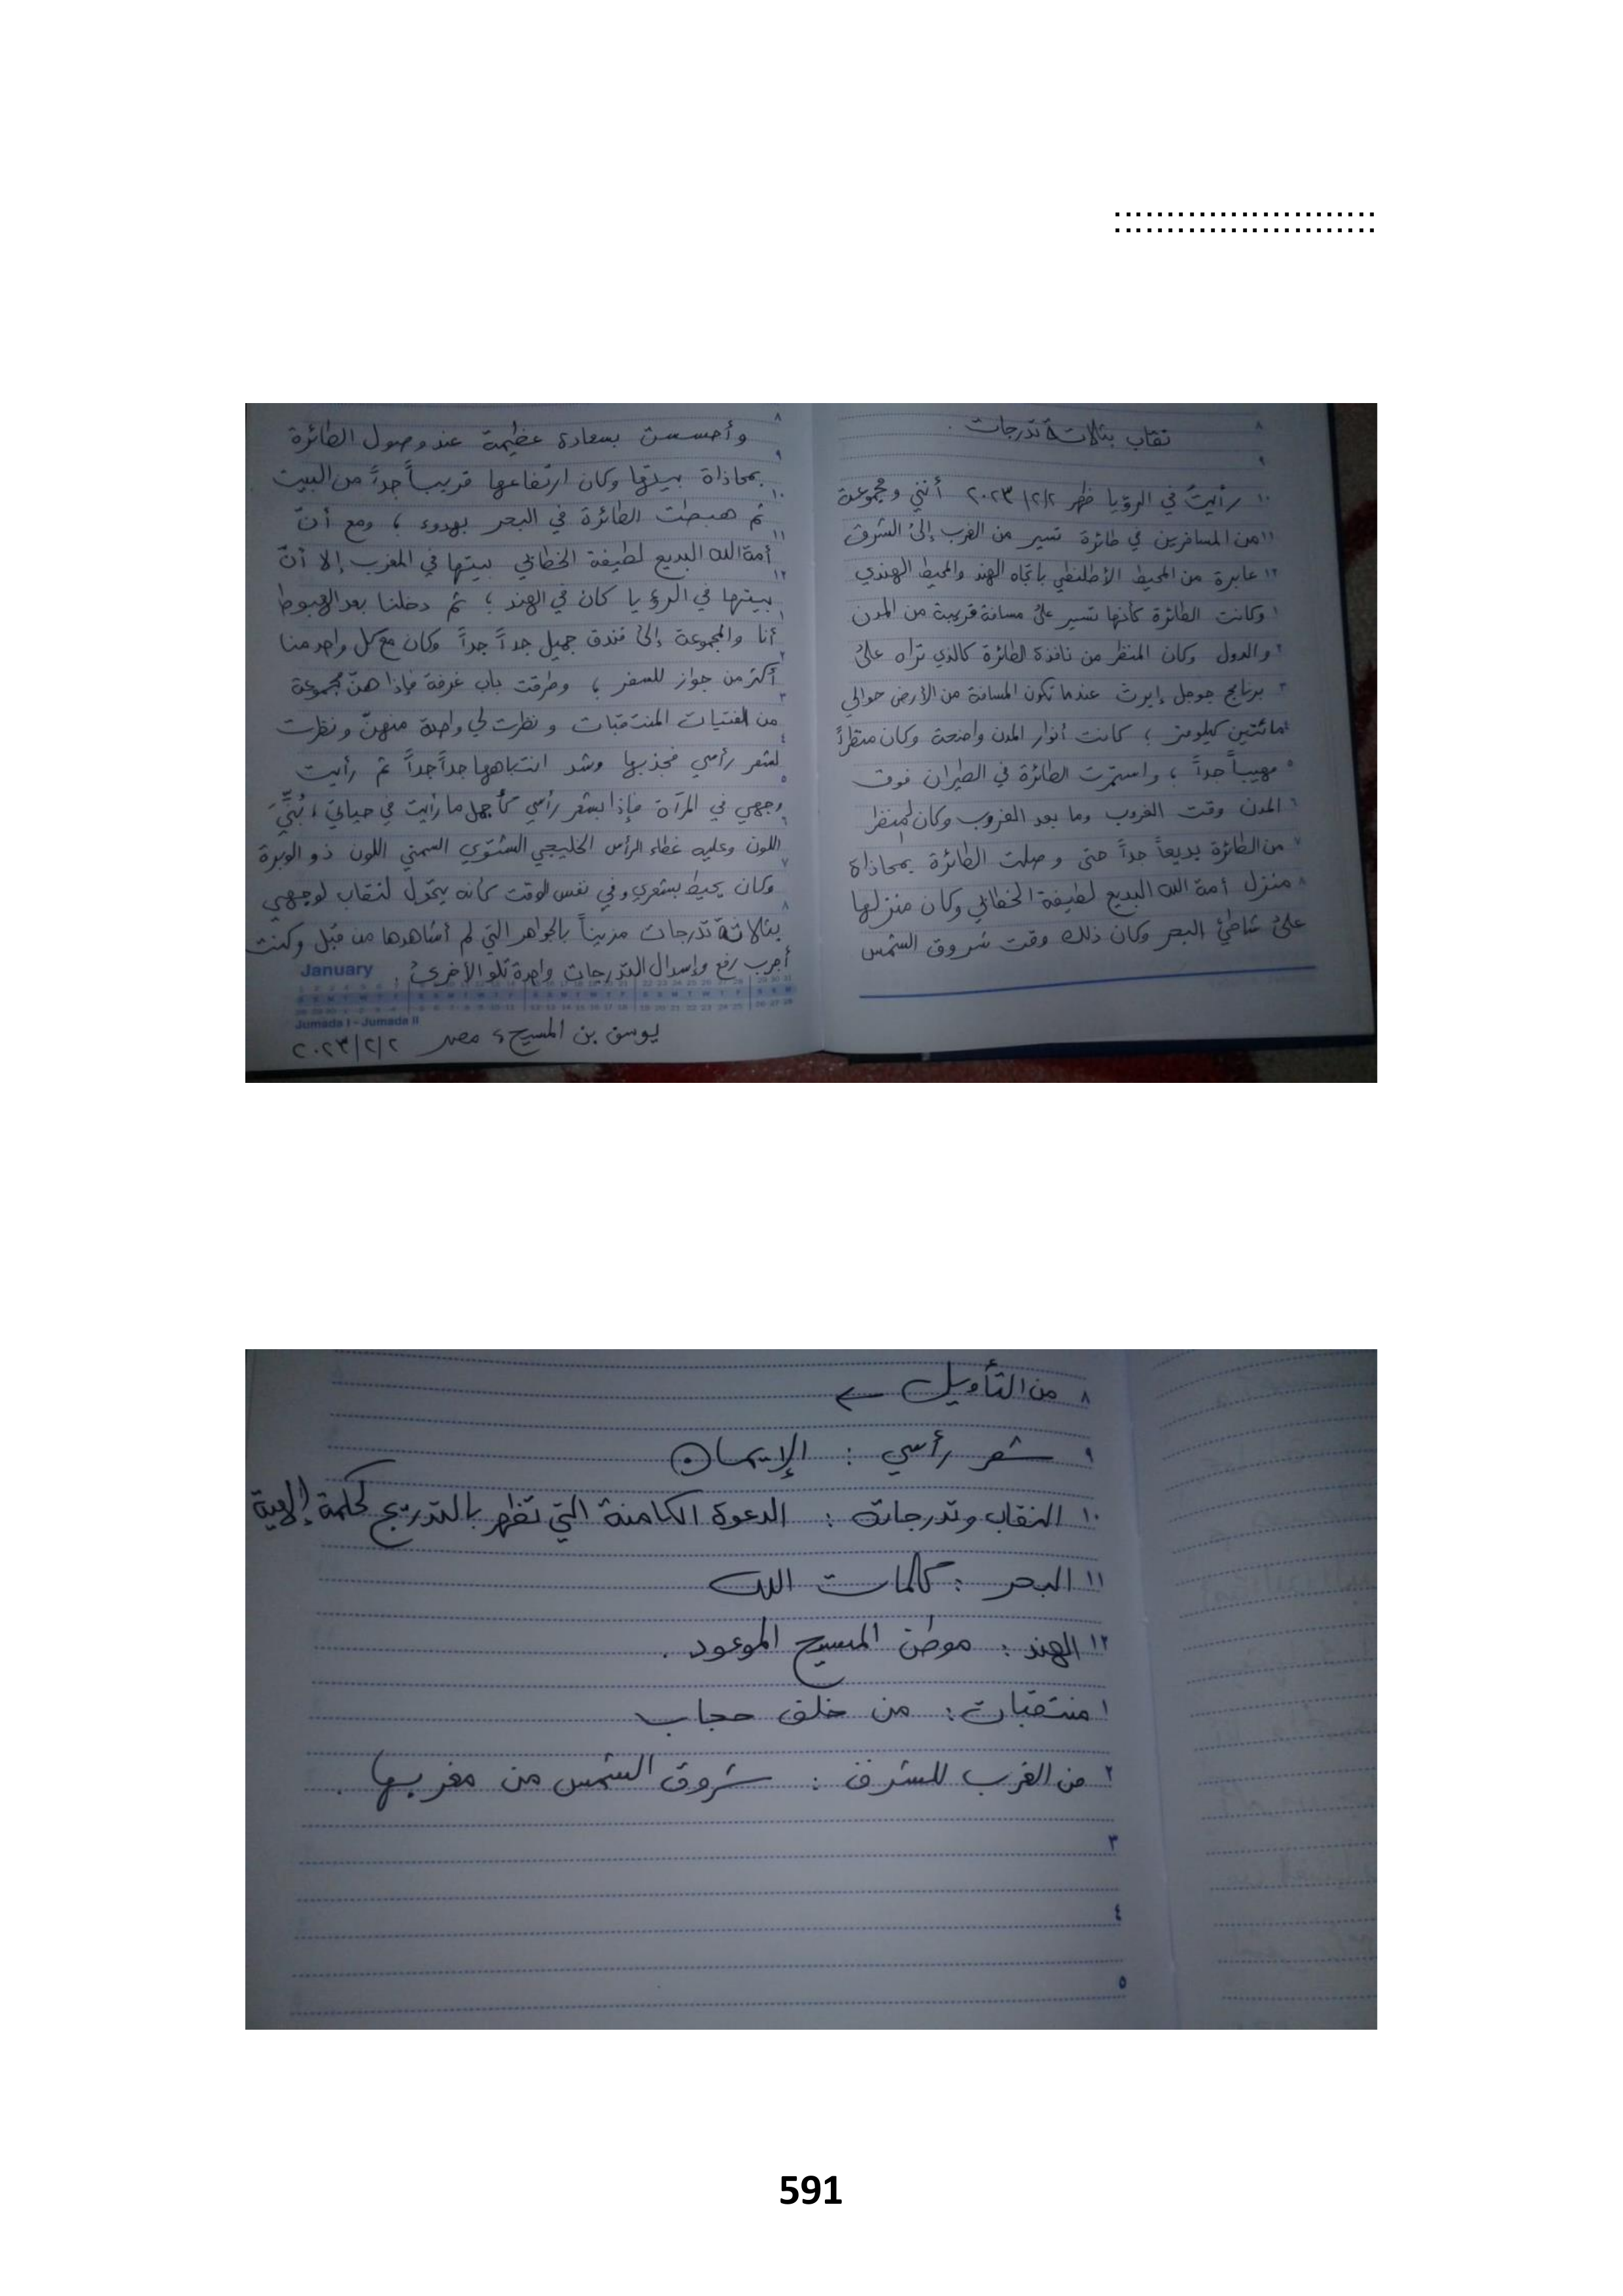 :::::::::::::::::::::::::
نقاب بثلاثة تدرجات .
رأيتُ في الرؤيا ظهر ٢٠٢٣/٢/٢ أنني ومجموعة
من المسافرين في طائرة تسير من الغرب إلى الشرق
عابرة من المحيط الأطلنطي باتجاه الهند والمحيط الهندي
وكانت الطائرة كأنها تسير على مسافة قريبة من المدن
والدول وكان المنظر من نافذة الطائرة كالذي تراه على
برنامج جوجل إيرث عندما تكون المسافة من الأرض حوالي
مائتين كيلومتر ؛ كانت أنوار المدن واضحة وكان منظراً
مهيباً جداً ؛ واستمرت الطائرة في الطيران فوق
المدن وقت الغروب وما بعد الغروب وكان المنظر
من الطائرة بديعاً جداً حتى وصلت الطائرة بمحاذاة
منزل أمة الله البديع لطيفة الخطابي وكان منزلها
على شاطئ البحر وكان ذلك وقت شروق الشمس
وأحسست بسعادة عظيمة عند وصول الطائرة
بمحاذاة بيتها وكان ارتفاعها قريباً جداً من البيت
ثم هبطت الطائرة في البحر بهدوء ؛ ومع أنّ
أمة الله البديع لطيفة الخطابي بيتها في المغرب إلا أنّ
بيتها في الرؤيا كان في الهند ؛ ثم دخلنا بعد الهبوط
أنا والمجموعة إلى فندق جميل جداً جداً وكان مع كل واحد منا
أكثر من جواز للسفر ؛ وطرقت باب غرفة فإذا هنّ مجموعة
من الفتيات المنتقبات ونظرت لي واحدة منهنّ ونظرت
لشعر رأسي فجذبها وشد انتباهها جداً جداً ثم رأيت
وجهي في المرآة فإذا بشعر رأسي كأجمل ما رأيت في حياتي ، بُنِّيَ
اللون وعليه غطاء الرأس الخليجي الشتوي السمني اللون ذو الوبرة
وكان يحيط بشعري وفي نفس الوقت كأنه يتحول لنقاب لوجهي
بثلاثة تدرجات مزيناً بالجواهر التي لم أشاهدها من قبل وكنت
أجرب رفع وإسدال التدرجات واحدة تلو الأخرى .
January
Jumada I - Jumada II
يوسف بن المسيح ، مصر ٢٠٢٣/٢/٢
٨ من التأويل ←
٩ شعر رأسي : الإيمان
١٠ النقاب وتدرجاته : الدعوة الكامنة التي تظهر بالتدريج كحكمة إلهية
١١ البحر : كلمات الله
١٢ الهند : موطن المسيح الموعود .
١ منتقبات : من خلف حجاب
٢ من الغرب للشرق : شروق الشمس من مغربها .
٣
٤
٥
591